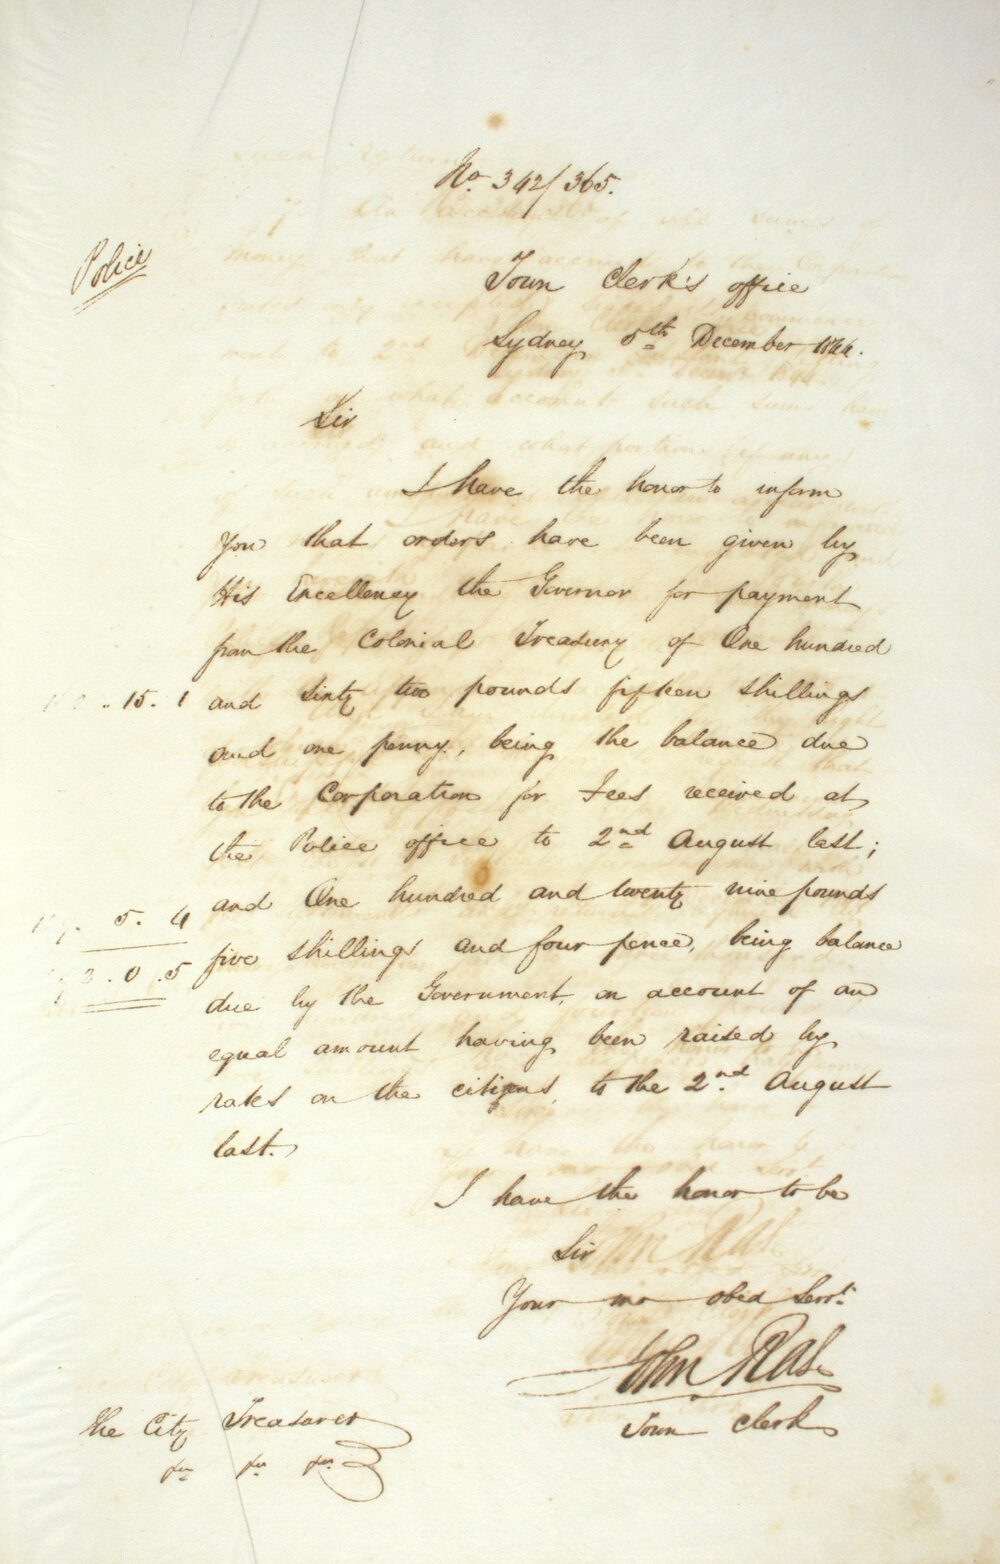 No. 342/365.
Police
Town Clerk's office
Sydney 5th December 1844.
Sir
I have the honor to inform
You that orders have been given by
His Excellency the Governor for payment
from the Colonial Treasury of One hundred
15. 1 and sixty two pounds fifteen shillings
and one penny, being the balance due
to the Corporation for Fees received at
the Police office to 2nd August last;
and One hundred and twenty nine pounds
5. 4
five shillings and four pence, being balance
2. 0. 5
due by the Government on account of an
equal amount having been raised by
rates on the citizens, to the 2nd August
last.
I have the honor to be
Sir
Your mo obed Servt.
John Rae
Town Clerk
The City Treasurer
&c &c &c